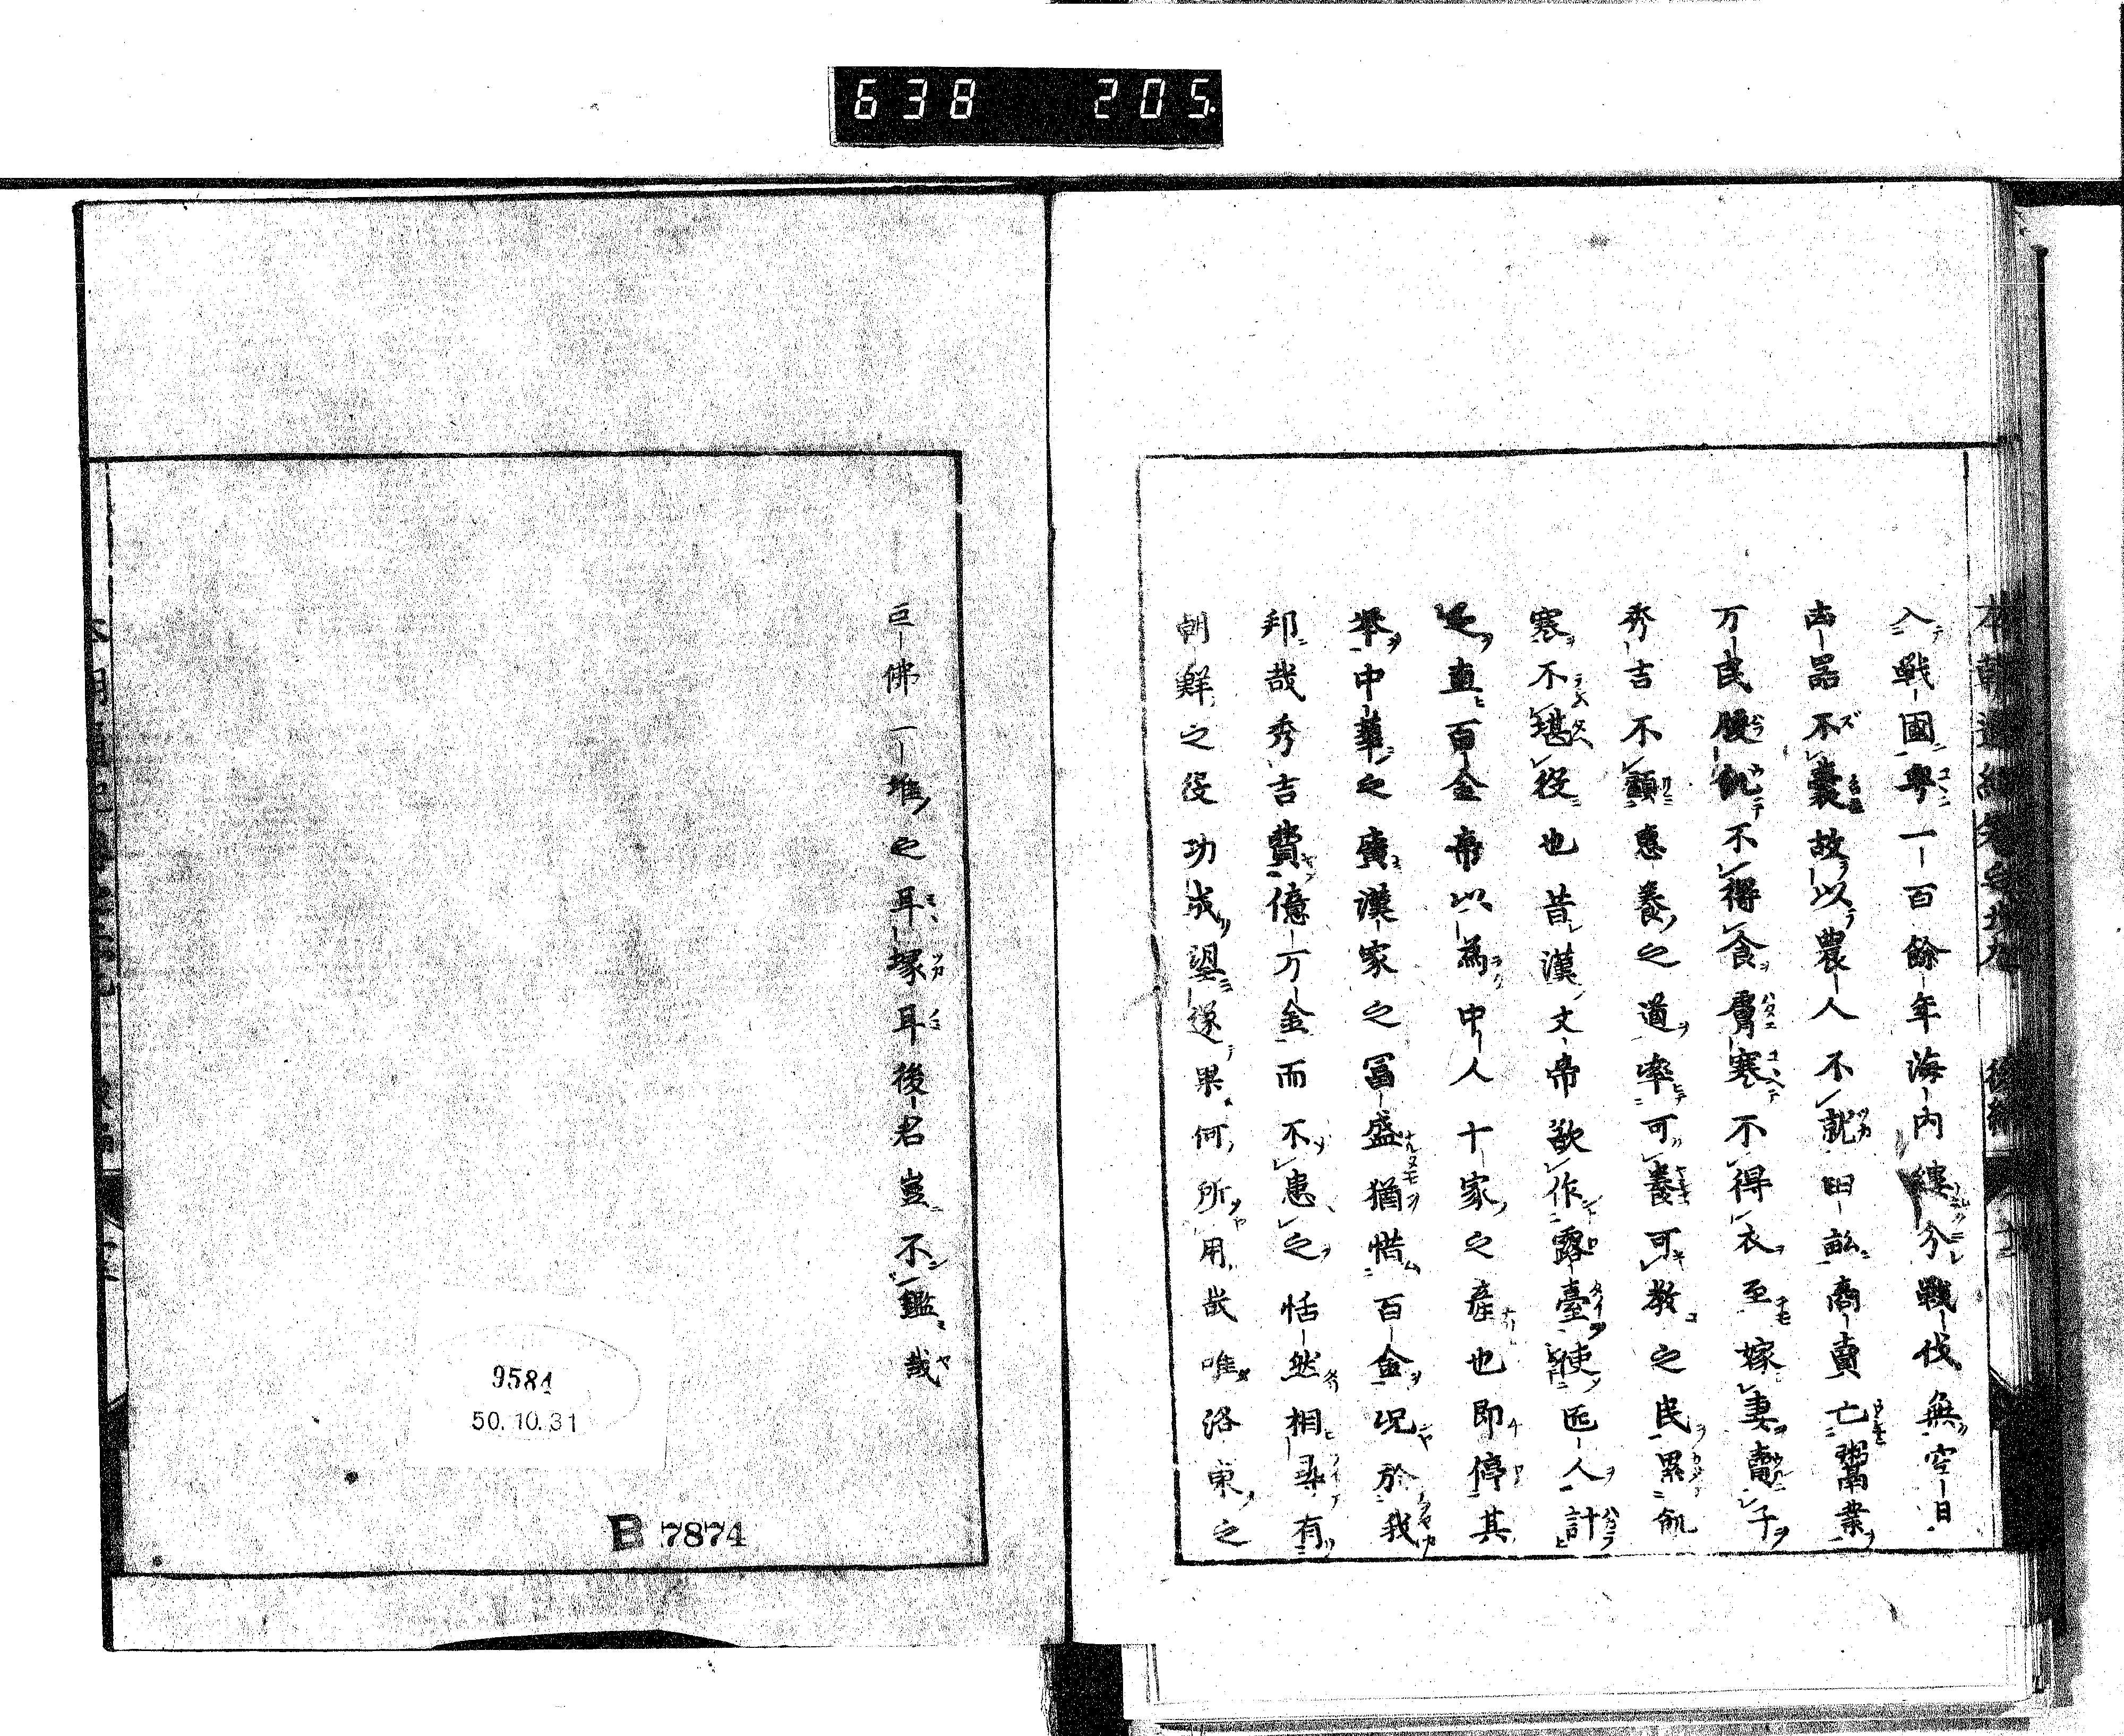 638 205.
入戰國粤一百餘年海内縷分戰伐無空日
凶器不嚢故以農人不就田畝商賣亡鬻業
万民腹飢不得食膚寒不得衣至嫁妻賣子
秀吉不顧恵養之道率可養可教之民累飢
寒不堪役也昔漢文帝欲作露臺使匠人計
之直百金帝以為中人十家之産也即停其
挙中華之廣漢家之冨盛猶惜百金况於我
邦哉秀吉費億万金而不患之恬然相尋有
朝鮮之役功成望遂果何所用哉唯洛東之
巨佛一堆之耳塚耳後君豈不鑑哉
9584
50.10.31
B 7874